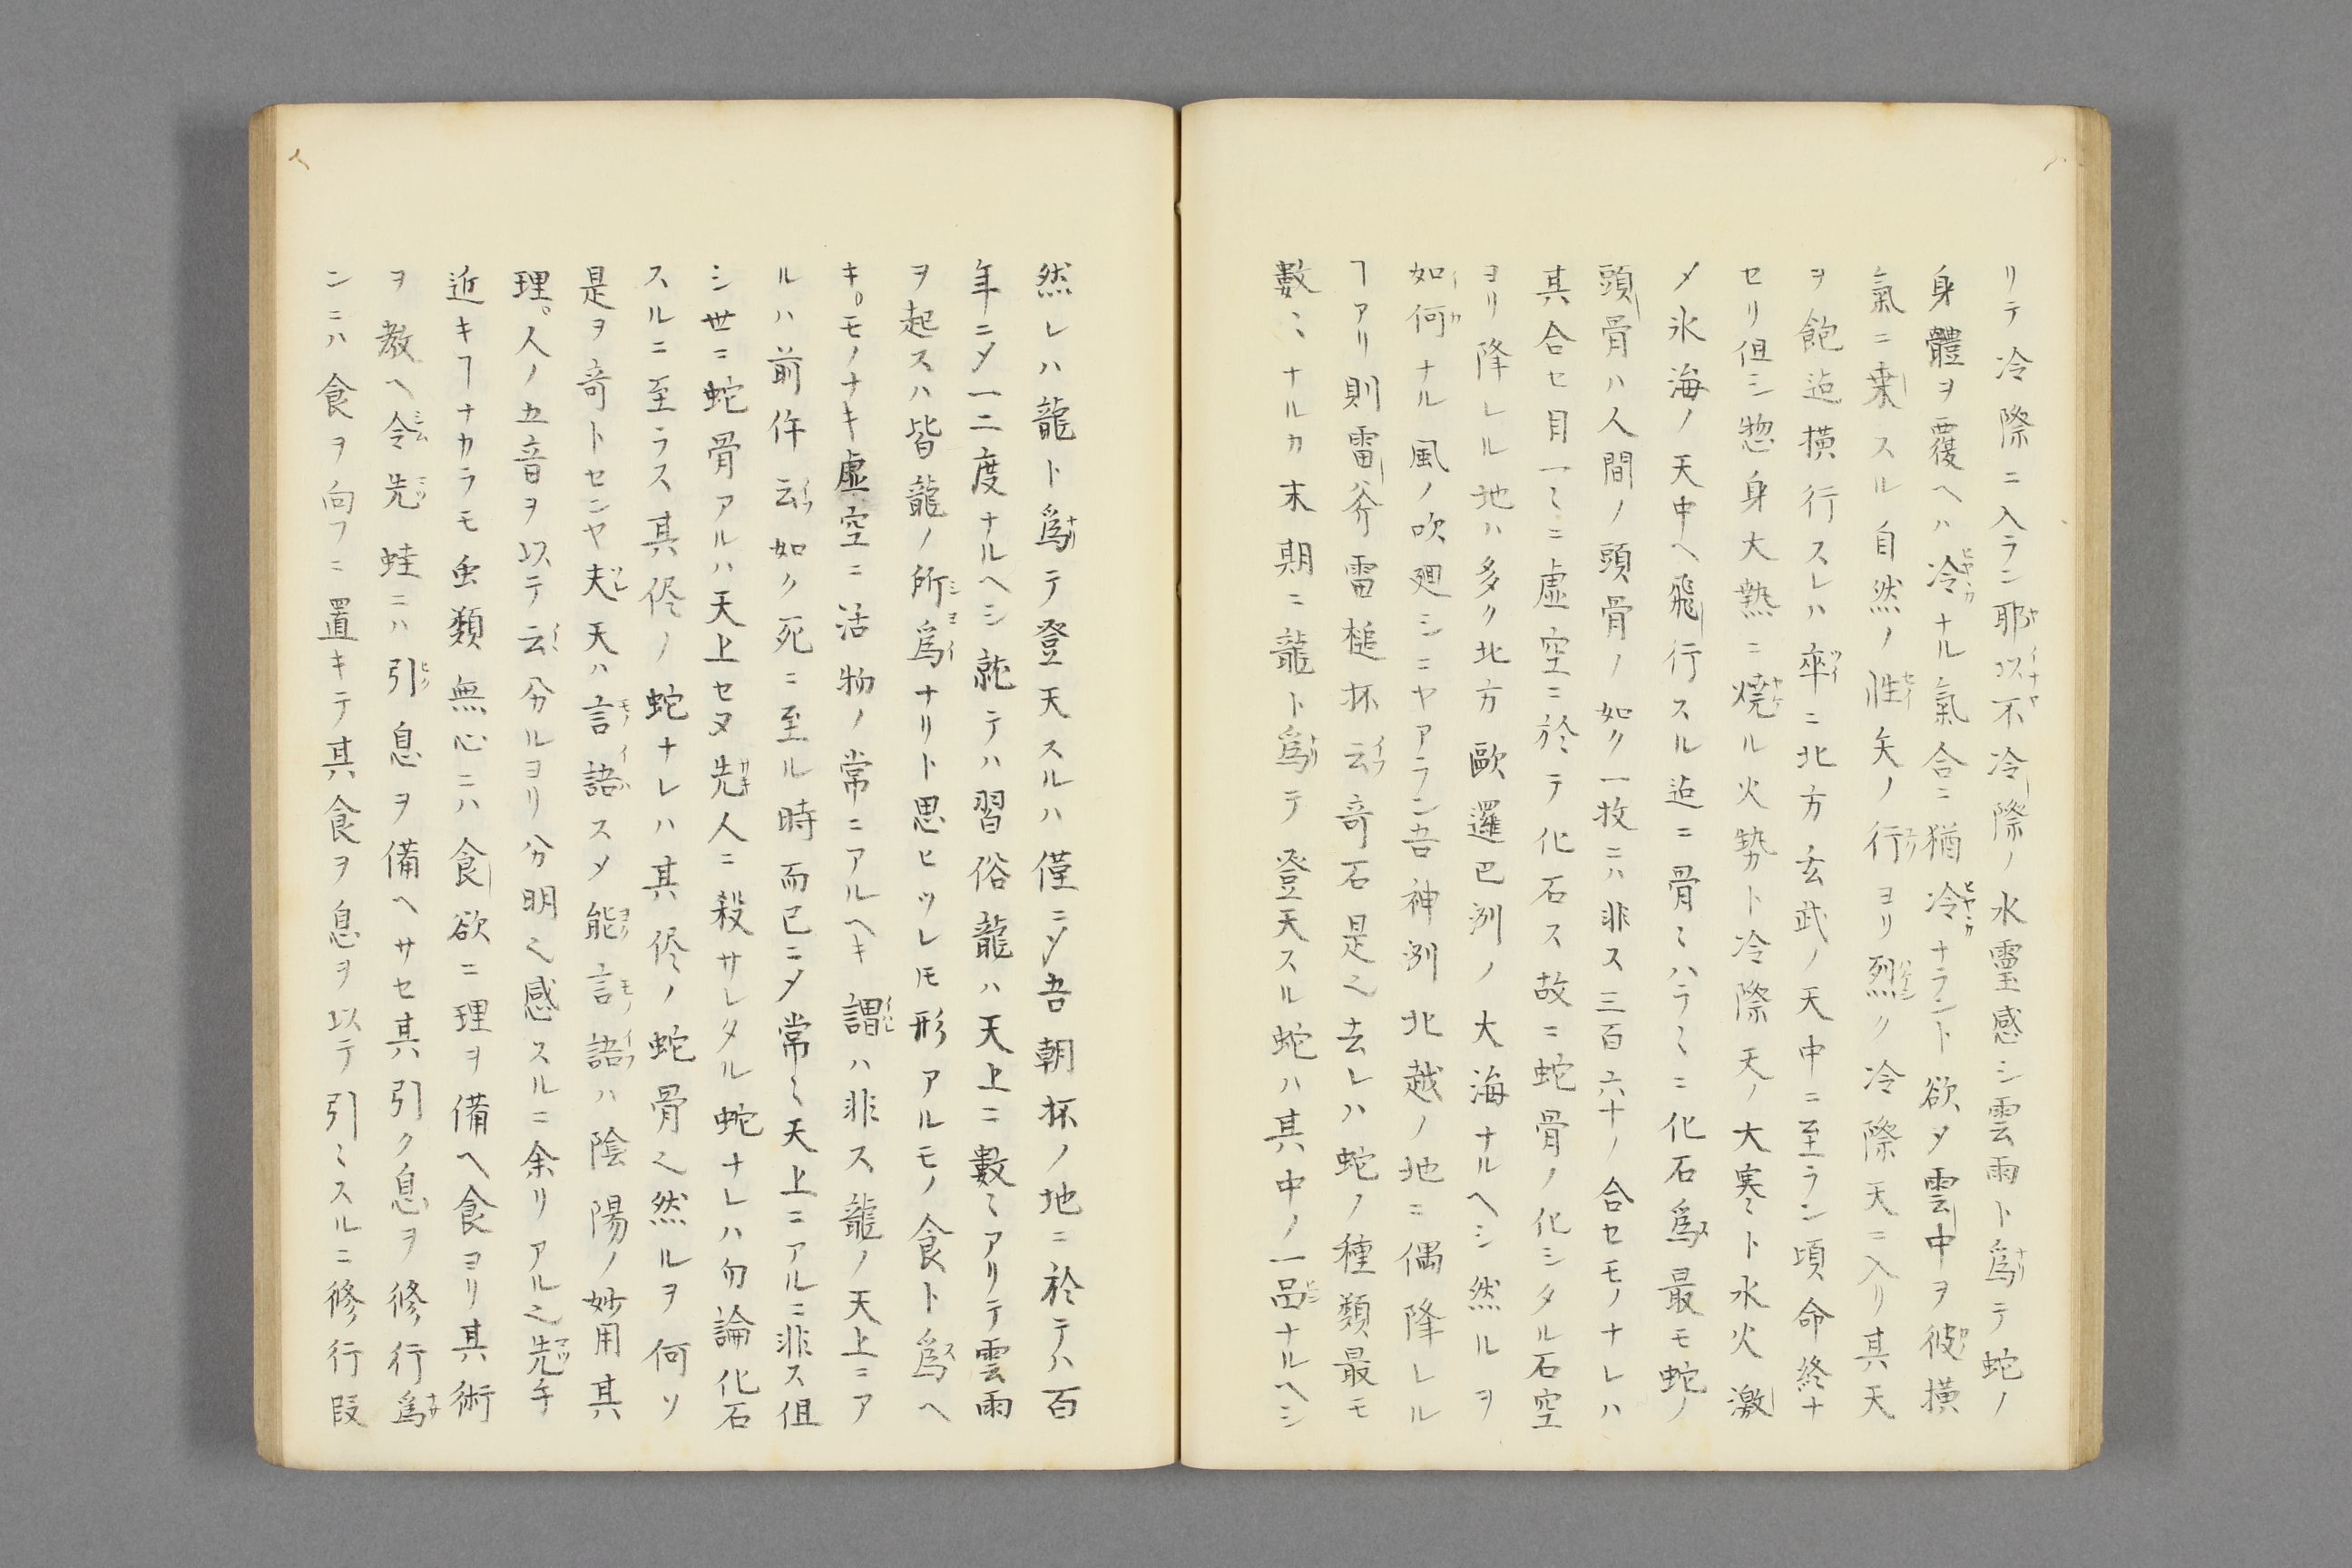 リテ冷際ニ入ラン耶以不冷際ノ水靈感シ雲雨ト為テ蛇ノ
身體ヲ覆ヘハ冷ナル氣合ニ猶冷ナラント欲メ雲中ヲ彼橫
氣ニ乗スル自然ノ性矢ノ行ヨリ烈ク冷際天ニ入リ其天
ヲ飽迠橫行スレハ卒ニ北方玄武ノ天中ニ至ラン頃命終ナ
セリ但シ惣身大熱ニ燒ル火勢ト冷際天ノ大寒ト水火激
メ氷海ノ天中ヘ飛行スル迠ニ骨〻ハラ〻ニ化石爲最モ蛇ノ
頭骨ハ人間ノ頭骨ノ如ク一枚ニハ非ス三百六十ノ合セモノナレハ
其合セ目一〻ニ虛空ニ於テ化石ス故ニ蛇骨ノ化シタル石空
ヨリ降レル地ハ多ク北方歐邏巴洲ノ大海ナルヘシ然ルヲ
如何ナル風ノ吹廻シニヤアラン吾神洲北越ノ地ニ偶降レル
ヿアリ則雷斧雷槌抔云奇石是之去レハ蛇ノ種類最モ
數〻ナルカ末期ニ龍ト爲テ登天スル蛇ハ其中ノ一品ナルヘシ
然レハ龍ト爲テ登天スルハ僅ニメ吾朝抔ノ地ニ於テハ百
年ニメ一二度ナルヘシ就テハ習俗龍ハ天上ニ數〻アリテ雲雨
ヲ起スハ皆龍ノ所爲ナリト思ヒツレ𪜈形アルモノ食ト爲ヘ
キ。モノナキ虛空ニ活物ノ常ニアルヘキ謂ハ非ス龍ノ天上ニア
ルハ前件云如ク死ニ至ル時而已ニメ常〻天上ニアルニ非ス但
シ世ニ蛇骨アルハ天上セヌ先人ニ殺サレタル蛇ナレハ勿論化石
スルニ至ラス其侭ノ蛇ナレハ其侭ノ蛇骨之然ルヲ何ソ
是ヲ奇トセンヤ夫天ハ言語スメ能言語ハ陰陽ノ妙用其
理。人ノ五音ヲ以テ云分ルヨリ分明之感スルニ余リアル之先手
近キヿナカラモ虫類無心ニハ食欲ニ理ヲ備ヘ食ヨリ其術
ヲ教ヘ令先蛙ニハ引息ヲ備ヘサセ其引ク息ヲ修行爲
ンニハ食ヲ向フニ置キテ其食ヲ息ヲ以テ引〻スルニ修行段